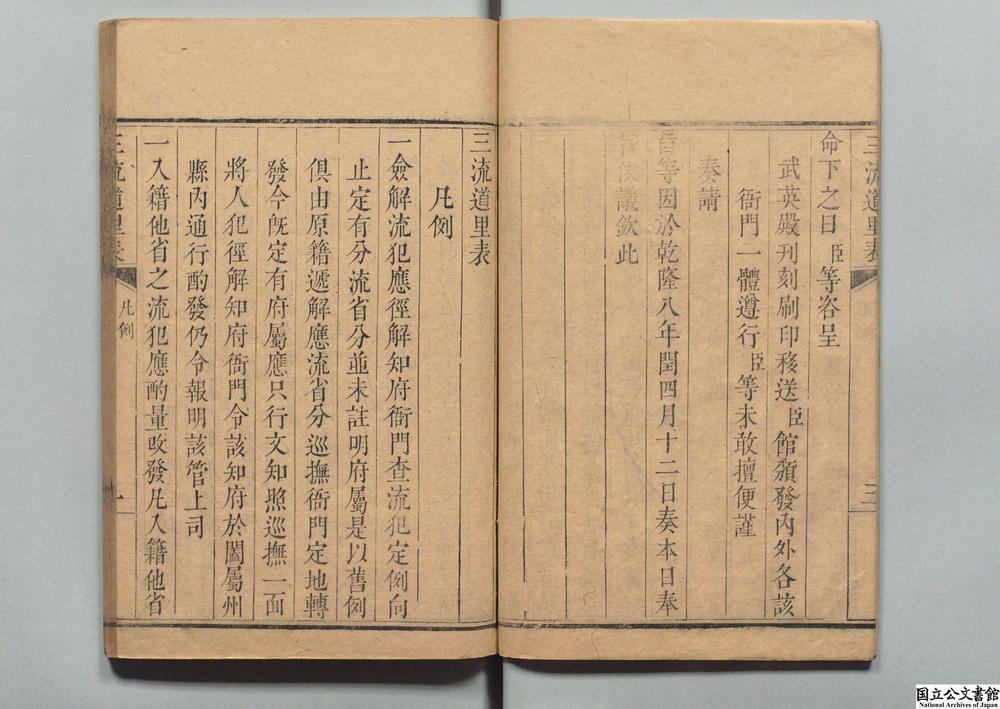 三流道里表
三
命下之日臣等咨呈
武英殿刊刻刷印移送臣館頒發內外各該
衙門一體遵行臣等未敢擅便謹
奏請
旨等因於乾隆八年閏四月十二日奏本日奉
旨依議欽此
三流道里表
凡例
一僉解流犯應徑解知府衙門查流犯定例向
止定有分流省分並未註明府屬是以舊例
俱由原籍遞解應流省分巡撫衙門定地轉
發今既定有府屬應只行文知照巡撫一面
將人犯徑解知府衙門令該知府於闔屬州
縣內通行酌發仍令報明該管上司
一入籍他省之流犯應酌量改發凡入籍他省
三流道里表
凡例
一
国立公文書館
National Archives of Japan